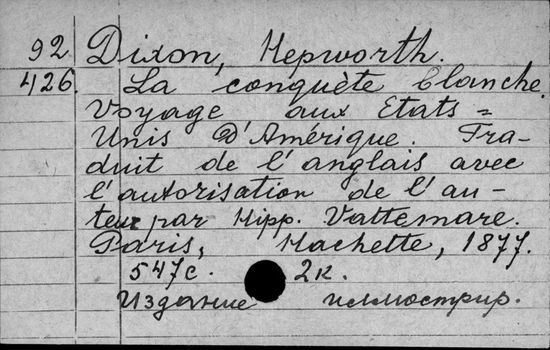 92 Dixon, Hepworth.
426. La conquète blanche.
Voyage aux Etats=
Unis d'Amérique. Tra-
duit de l'anglais avec
l'autorisation de l'au-
teur par Hipp. Vattemare.
Paris, Hachette, 1877.
547с. 2к.
Издание иллюстрир.